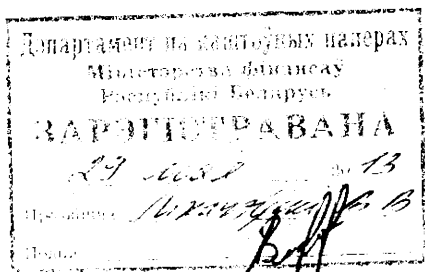 Дэпартамент па каштоўных паперах
Міністэрства фінансаў
Рэспублікі Беларусь
ЗАРЭГІСТРАВАНА
29 мая 13
Прозвішча
Подпіс